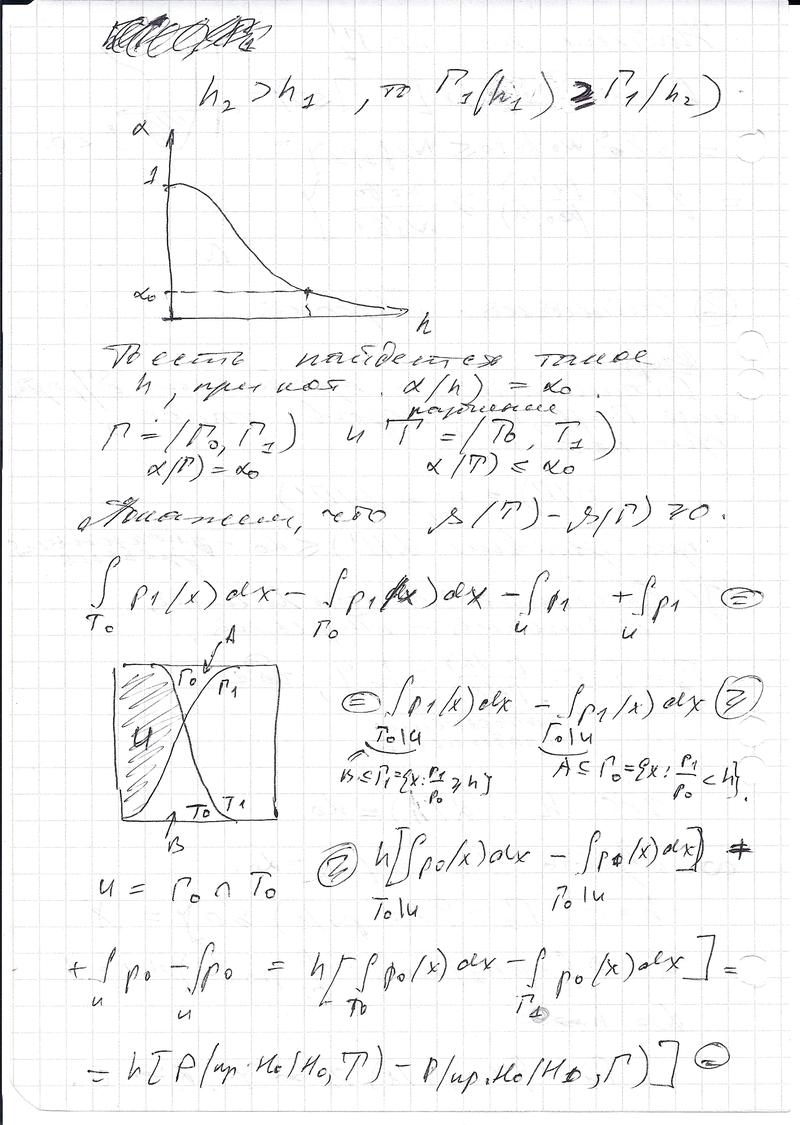 h₂ > h₁, то Г₁(h₁) ⊇ Г₁(h₂)
α
1
α₀
h
То есть найдется такое
h, при кот. α(h) = α₀.
разбиение
Г = (Г₀, Г₁) и T = (T₀, T₁)
α(Г) = α₀ α(T) ≤ α₀
Покажем, что β(T) - β(Г) ≥ 0.
∫_{T₀} p₁(x)dx - ∫_{Г₀} p₁(x)dx - ∫_u p₁ + ∫_u p₁ =
A
Г₀ Г₁
u
T₀ T₁
B
= ∫_{T₀\u} p₁(x)dx - ∫_{Г₀\u} p₁(x)dx ≥
B ⊆ Г₁ = {x: p₁/p₀ ≥ h} A ⊆ Г₀ = {x: p₁/p₀ < h}.
u = Г₀ ∩ T₀
≥ h[∫_{T₀\u} p₀(x)dx - ∫_{Г₀\u} p₀(x)dx]
+ ∫_u p₀ - ∫_u p₀ = h[∫_{T₀} p₀(x)dx - ∫_{Г₀} p₀(x)dx] =
= h[P(пр. H₀/H₀, T) - P(пр. H₀/H₀, Г)] =